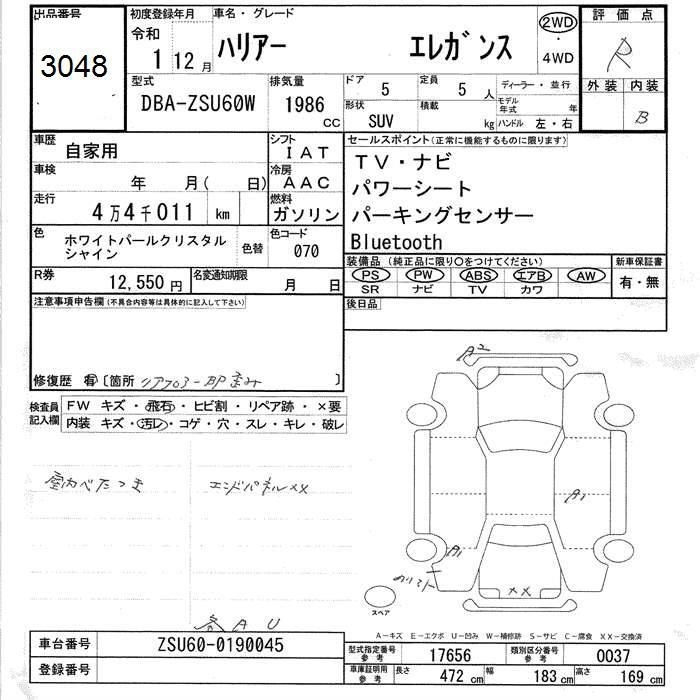 出品番号
3048
初度登録年月
令和
1 12月
車名・グレード
ハリアー エレガンス
2WD
4WD
評価点
R
外装 内装
B
型式
DBA-ZSU60W
排気量
1986
cc
ドア
5
定員
5 人
形状
SUV
積載
kg
ディーラー・並行
モデル年式 年
ハンドル 左・右
車歴
自家用
シフト
IAT
車検
年 月( 日)
冷房
AAC
走行
4万4千011 km
燃料
ガソリン
色
ホワイトパールクリスタル
シャイン
色替
色コード
070
R券
12,550円
名変通知期限
月 日
セールスポイント(正常に機能するものに限ります)
TV・ナビ
パワーシート
パーキングセンサー
Bluetooth
装備品(純正品に限り○をつけてください)
PS PW ABS エアB AW
SR ナビ TV カワ
新車保証書
有・無
後日品
注意事項申告欄(不具合内容等は具体的に記入して下さい)
修復歴 有 〔箇所 リアフロアー部歪み 〕
検査員
記入欄
FW キズ・飛石・ヒビ割・リペア跡・×要
内装 キズ・汚レ・コゲ・穴・スレ・キレ・破レ
室内べたつき
エンドパネルXX
各AU
A2
A1
A1
XX
スペア
A-キズ E-エクボ U-凹み W-補修跡 S-サビ C-腐食 XX-交換済
車台番号
ZSU60-0190045
登録番号
型式指定番号
参考
17656
類別区分番号
参考
0037
車庫証明用
参考
長さ
472 cm
幅
183 cm
高さ
169 cm